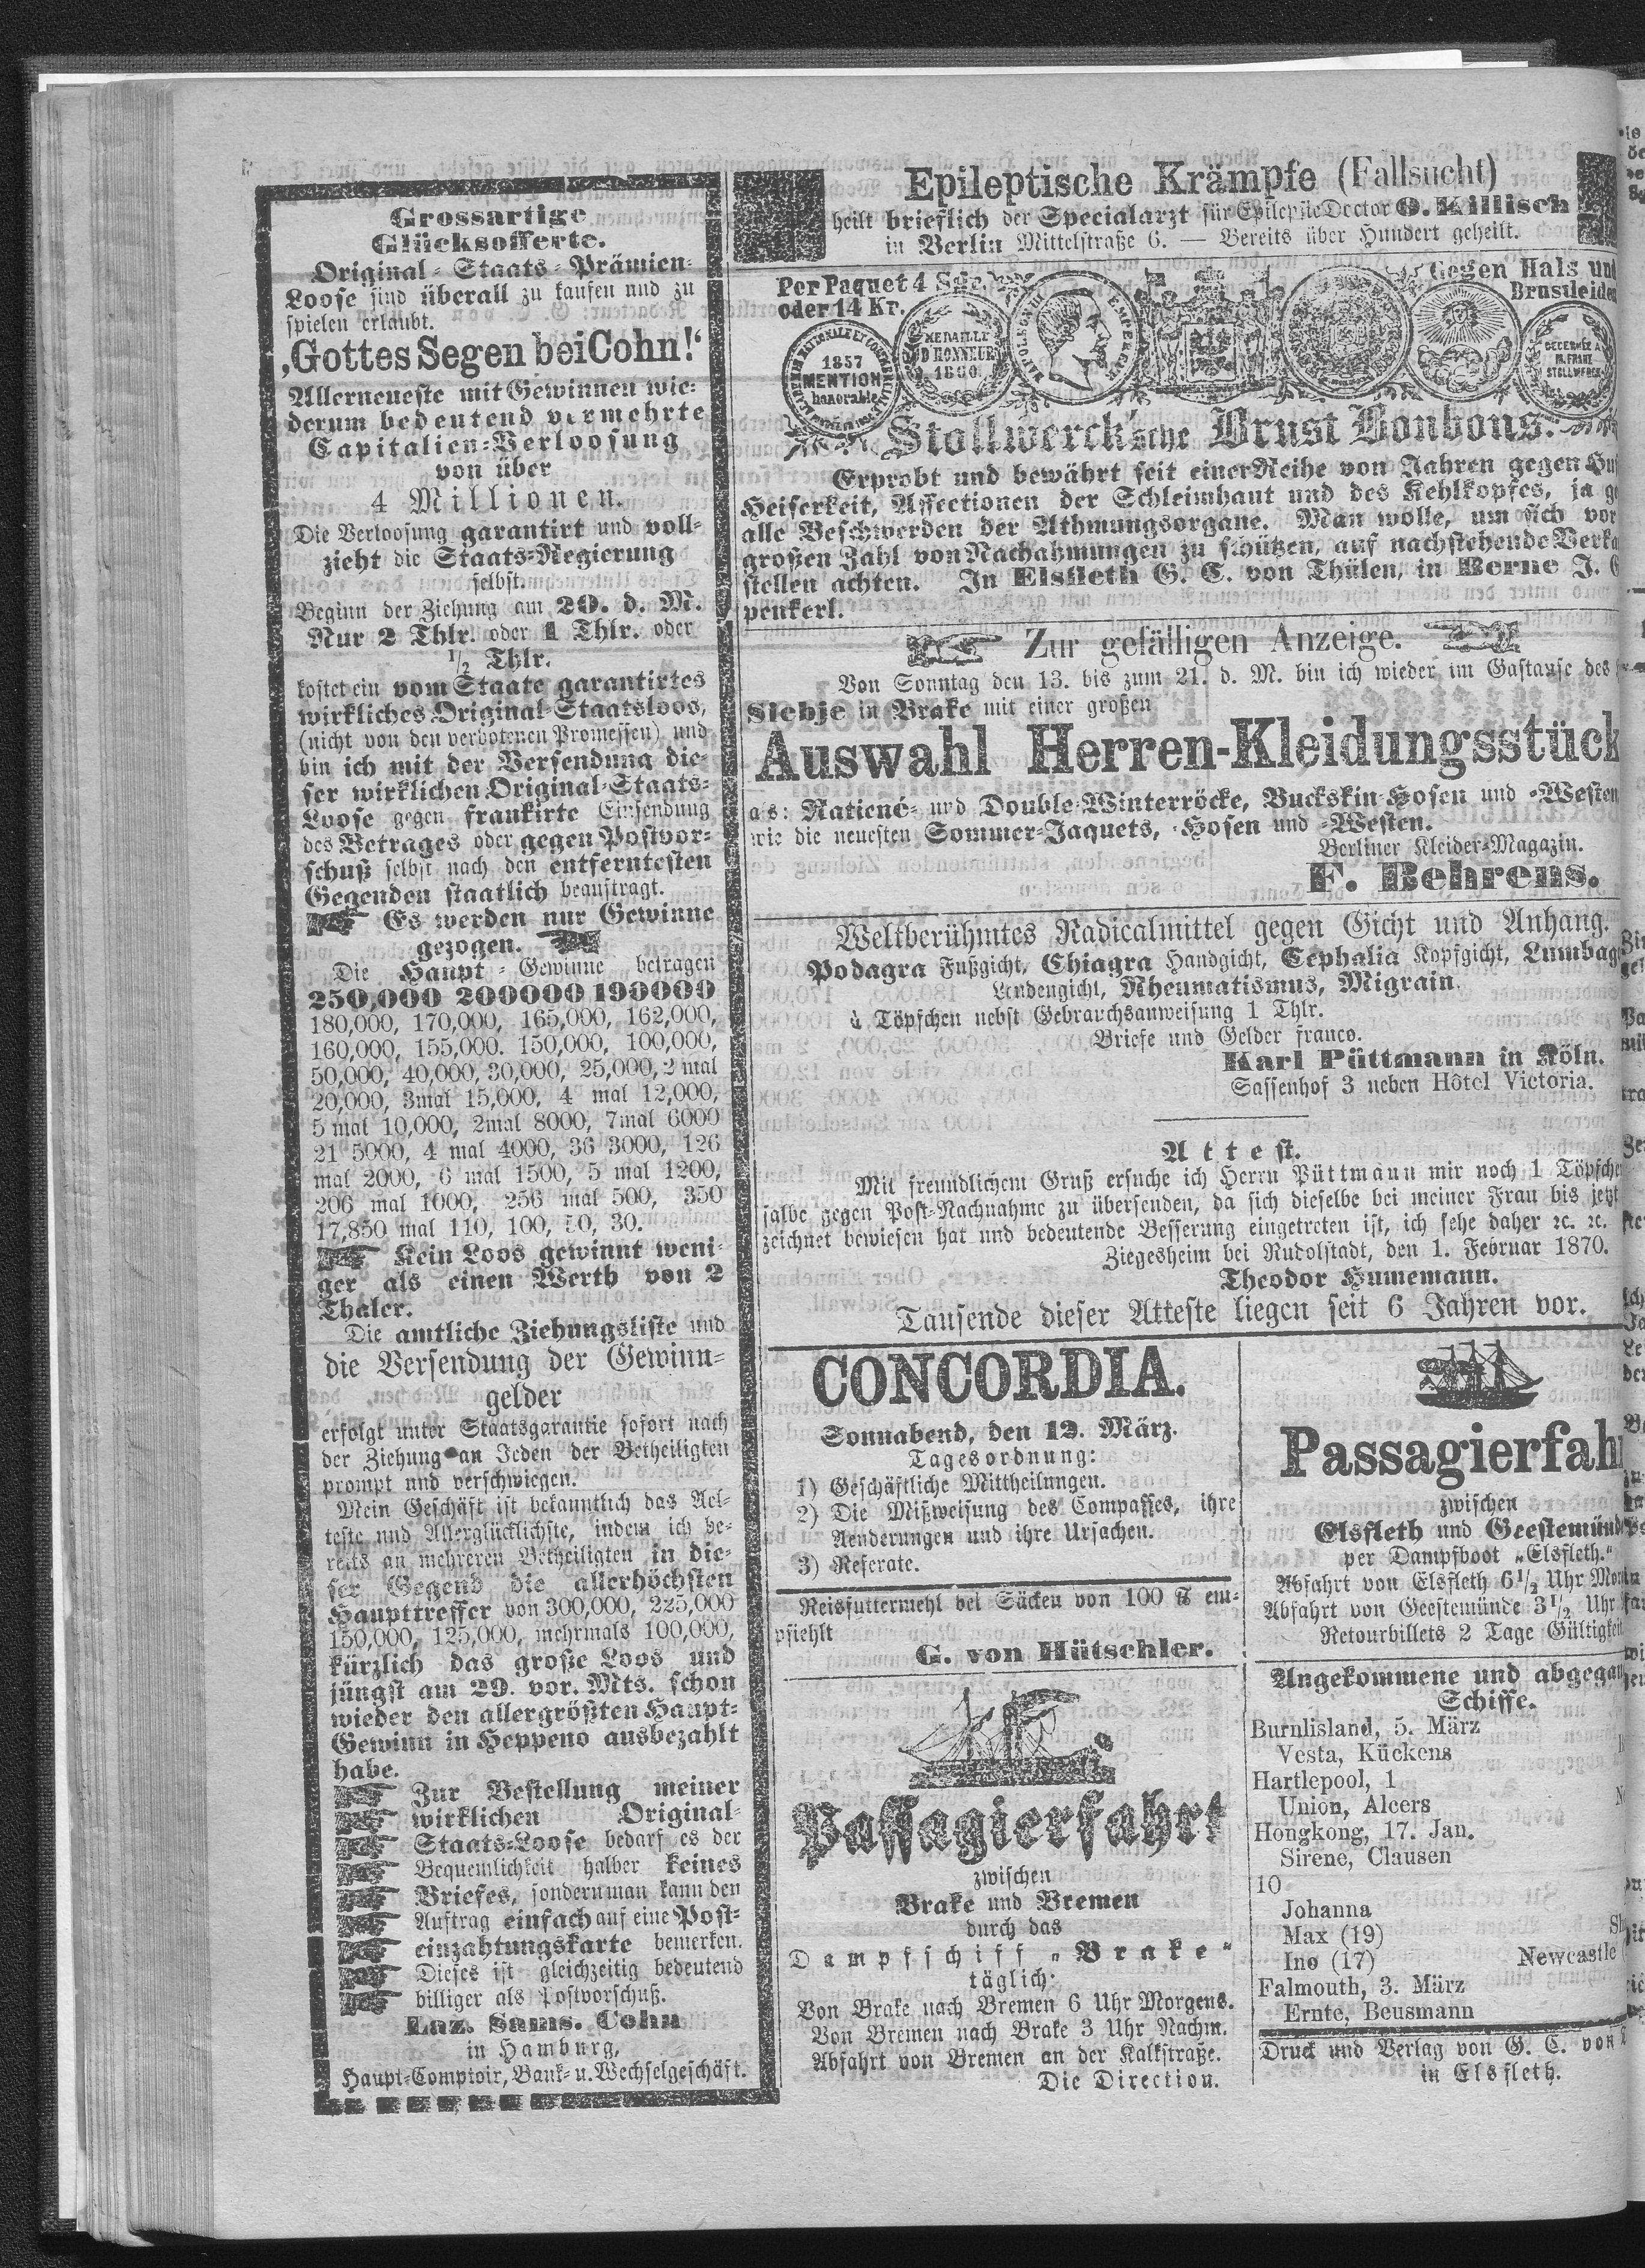 Grossartige
Glücksofferte.
Original-Staats-Prämien-
Loose sind überall zu kaufen und zu
spielen erlaubt.
‚Gottes Segen bei Cohn!‘
Allerneueste mit Gewinnen wie-
derum bedeutend vermehrte
Capitalien-Verloosung
von über
4 Millionen.
Die Verloosung garantirt und voll-
zieht die Staats-Regierung
selbst.
Beginn der Ziehung am 20. d. M.
Nur 2 Thlr. oder 1 Thlr. oder
1/2 Thlr.
kostet ein vom Staate garantirtes
wirkliches Original-Staatsloos,
(nicht von den verbotenen Promessen) und
bin ich mit der Versendung die-
ser wirklichen Original-Staats-
Loose gegen frankirte Einsendung
des Betrages oder gegen Postvor-
schuß selbst nach den entferntesten
Gegenden staatlich beauftragt.
Es werden nur Gewinne
gezogen.
Die Haupt-Gewinne betragen
250,000 200000 190000
180,000, 170,000, 165,000, 162,000,
160,000, 155,000. 150,000, 100,000,
50,000, 40,000, 30,000, 25,000, 2 mal
20,000, 3mal 15,000, 4 mal 12,000,
5 mal 10,000, 2mal 8000, 7mal 6000
21 5000, 4 mal 4000, 36 3000, 126
mal 2000, 6 mal 1500, 5 mal 1200,
206 mal 1000, 256 mal 500, 350
17,850 mal 110, 100, 50, 30.
Kein Loos gewinnt weni-
ger als einen Werth von 2
Thaler.
Die amtliche Ziehungsliste und
die Versendung der Gewinn-
gelder
erfolgt unter Staatsgarantie sofort nach
der Ziehung an Jeden der Betheiligten
prompt und verschwiegen.
Mein Geschäft ist bekanntlich das Ael-
teste und Allerglücklichste, indem ich be-
reits an mehreren Betheiligten in die-
ser Gegend die allerhöchsten
Haupttreffer von 300,000, 225,000
150,000, 125,000, mehrmals 100,000,
kürzlich das große Loos und
jüngst am 29. vor. Mts. schon
wieder den allergrößten Haupt-
Gewinn in Heppeno ausbezahlt
habe.
Zur Bestellung meiner
wirklichen Original-
Staats-Loose bedarf es der
Bequemlichkeit halber keines
Briefes, sondern man kann den
Auftrag einfach auf eine Post-
einzahtungskarte bemerken.
Dieses ist gleichzeitig bedeutend
billiger als Postvorschuß.
Laz. Sams. Cohn
in Hamburg,
Haupt-Comptoir, Bank- u. Wechselgeschäft.
Epileptische Krämpfe (Fallsucht)
heilt brieflich der Specialarzt für Epilepsie Doctor O. Killisch
in Berlin Mittelstraße 6. — Bereits über Hundert geheilt.
Per Paquet 4 Sgr.
oder 14 Kr.
Gegen Hals und
Brustleiden
1857
MENTION
honorable
MEDAILLE
D'HONNEUR
1860
NAPOLEON III EMPEREUR
DECERNÉE A
FR. FRANZ
STOLLWERCK
Stollwerck'sche Brust Bonbons.
Erprobt und bewährt seit einer Reihe von Jahren gegen Hus
Heiserkeit, Affectionen der Schleimhaut und des Kehlkopfes, ja ge
alle Beschwerden der Athmungsorgane. Man wolle, um sich vor
großen Zahl von Nachahmungen zu schützen, auf nachstehende Verka
stellen achten. In Elsfleth G. C. von Thülen, in Berne J. G
penkerl.
Zur gefälligen Anzeige.
Von Sonntag den 13. bis zum 21. d. M. bin ich wieder im Gastause des
Siebje in Brake mit einer großen
Auswahl Herren-Kleidungsstück
als: Ratiené- und Double-Winterröcke, Buckskin-Hosen und -Westen
wie die neuesten Sommer-Jaquets, -Hosen und -Westen.
Berliner Kleider-Magazin.
F. Behrens.
Weltberühmtes Radicalmittel gegen Gicht und Anhang.
Podagra Fußgicht, Chiagra Handgicht, Cephalia Kopfgicht, Lumbag
Lendengicht, Rheumatismus, Migrain.
à Töpfchen nebst Gebrauchsanweisung 1 Thlr.
Briefe und Gelder franco.
Karl Püttmann in Köln.
Sassenhof 3 neben Hôtel Victoria.
Attest.
Mit freundlichem Gruß ersuche ich Herrn Püttmann mir noch 1 Töpfche
salbe gegen Post-Nachnahme zu übersenden, da sich dieselbe bei meiner Frau bis jetzt
zeichnet bewiesen hat und bedeutende Besserung eingetreten ist, ich sehe daher ꝛc. ꝛc.
Ziegesheim bei Rudolstadt, den 1. Februar 1870.
Theodor Humemann.
Tausende dieser Atteste liegen seit 6 Jahren vor.
CONCORDIA.
Sonnabend, den 12. März.
Tagesordnung:
1) Geschäftliche Mittheilungen.
2) Die Mißweisung des Compasses, ihre
Aenderungen und ihre Ursachen.
3) Referate.
Reisfuttermehl bei Säcken von 100 ℔ em-
pfiehlt
G. von Hütschler.
Passagierfahrt
zwischen
Brake und Bremen
durch das
Dampfschiff „Brake“
täglich:
Von Brake nach Bremen 6 Uhr Morgens.
Von Bremen nach Brake 3 Uhr Nachm.
Abfahrt von Bremen an der Kalkstraße.
Die Direction.
Passagierfah
zwischen
Elsfleth und Geestemünd
per Dampfboot „Elsfleth.“
Abfahrt von Elsfleth 6 1/2 Uhr Mor
Abfahrt von Geestemünde 3 1/2 Uhr
Retourbillets 2 Tage Gültigkeit
Angekommene und abgegan
Schiffe.
Burnlisland, 5. März
Vesta, Kückens
Hartlepool, 1
Union, Alcers
Hongkong, 17. Jan.
Sirene, Clausen
10
Johanna
Max (19)
Ino (17) Newcastle
Falmouth, 3. März
Ernte, Beusmann
Druck und Verlag von G. C. von
in Elsfleth.